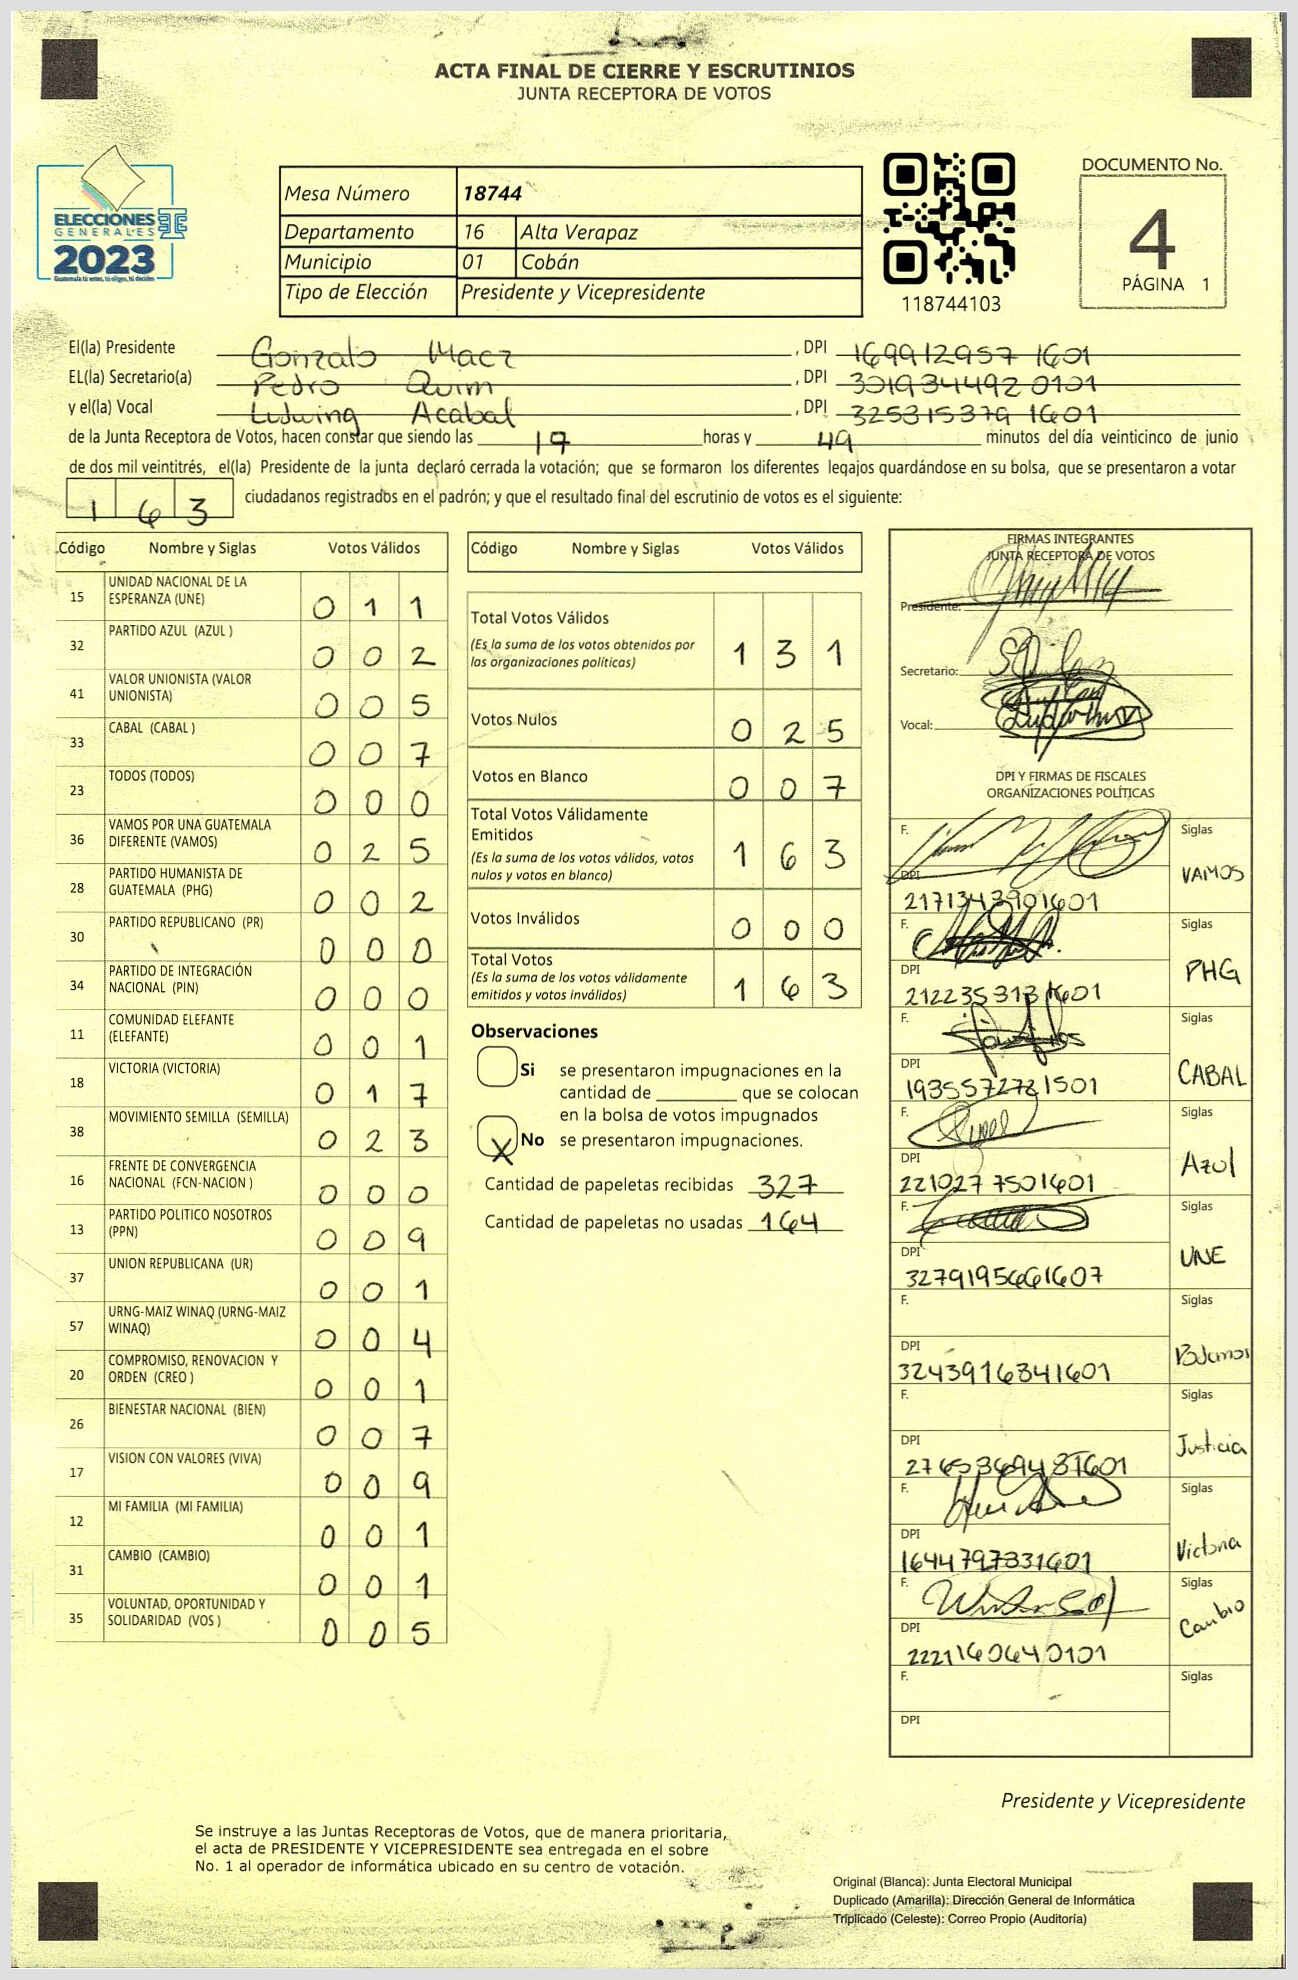 ACTA FINAL DE CIERRE Y ESCRUTINIOS
JUNTA RECEPTORA DE VOTOS
ELECCIONES
GENERALES
2023
Guatemala tú votas, tú eliges, tú decides
Mesa Número 18744
Departamento 16 Alta Verapaz
Municipio 01 Cobán
Tipo de Elección Presidente y Vicepresidente
118744103
DOCUMENTO No.
4
PÁGINA 1
El(la) Presidente Gonzalo Macz , DPI 169912957 1601
EL(la) Secretario(a) Pedro Quim , DPI 301934492 0101
y el(la) Vocal Ludwing Acabal , DPI 325315379 1601
de la Junta Receptora de Votos, hacen constar que siendo las 19 horas y 49 minutos del día veinticinco de junio
de dos mil veintitrés, el(la) Presidente de la junta declaró cerrada la votación; que se formaron los diferentes legajos guardándose en su bolsa, que se presentaron a votar
163 ciudadanos registrados en el padrón; y que el resultado final del escrutinio de votos es el siguiente:
Código Nombre y Siglas Votos Válidos
15 UNIDAD NACIONAL DE LA ESPERANZA (UNE) 0 1 1
32 PARTIDO AZUL (AZUL ) 0 0 2
41 VALOR UNIONISTA (VALOR UNIONISTA) 0 0 5
33 CABAL (CABAL ) 0 0 7
23 TODOS (TODOS) 0 0 0
36 VAMOS POR UNA GUATEMALA DIFERENTE (VAMOS) 0 2 5
28 PARTIDO HUMANISTA DE GUATEMALA (PHG) 0 0 2
30 PARTIDO REPUBLICANO (PR) 0 0 0
34 PARTIDO DE INTEGRACIÓN NACIONAL (PIN) 0 0 0
11 COMUNIDAD ELEFANTE (ELEFANTE) 0 0 1
18 VICTORIA (VICTORIA) 0 1 7
38 MOVIMIENTO SEMILLA (SEMILLA) 0 2 3
16 FRENTE DE CONVERGENCIA NACIONAL (FCN-NACION ) 0 0 0
13 PARTIDO POLITICO NOSOTROS (PPN) 0 0 9
37 UNION REPUBLICANA (UR) 0 0 1
57 URNG-MAIZ WINAQ (URNG-MAIZ WINAQ) 0 0 4
20 COMPROMISO, RENOVACION Y ORDEN (CREO ) 0 0 1
26 BIENESTAR NACIONAL (BIEN) 0 0 7
17 VISION CON VALORES (VIVA) 0 0 9
12 MI FAMILIA (MI FAMILIA) 0 0 1
31 CAMBIO (CAMBIO) 0 0 1
35 VOLUNTAD, OPORTUNIDAD Y SOLIDARIDAD (VOS ) 0 0 5
Código Nombre y Siglas Votos Válidos
Total Votos Válidos 1 3 1
(Es la suma de los votos obtenidos por
las organizaciones políticas)
Votos Nulos 0 2 5
Votos en Blanco 0 0 7
Total Votos Válidamente
Emitidos 1 6 3
(Es la suma de los votos válidos, votos
nulos y votos en blanco)
Votos Inválidos 0 0 0
Total Votos 1 6 3
(Es la suma de los votos válidamente
emitidos y votos inválidos)
Observaciones
Si se presentaron impugnaciones en la
cantidad de ________ que se colocan
en la bolsa de votos impugnados
X No se presentaron impugnaciones.
Cantidad de papeletas recibidas 327
Cantidad de papeletas no usadas 164
FIRMAS INTEGRANTES
JUNTA RECEPTORA DE VOTOS
Presidente:
Secretario:
Vocal:
DPI Y FIRMAS DE FISCALES
ORGANIZACIONES POLÍTICAS
F. Siglas
DPI VAMOS
2171343901601
F. Siglas
DPI PHG
2122353131601
F. Siglas
DPI CABAL
1935572721501
F. Siglas
DPI Azul
2210277501601
F. Siglas
DPI UNE
3279195661607
F. Siglas
DPI Podemos
3243916341601
F. Siglas
DPI Justicia
F. Siglas
DPI Victoria
1644797331601
F. Siglas
DPI Cambio
2221160640101
F. Siglas
DPI
Presidente y Vicepresidente
Se instruye a las Juntas Receptoras de Votos, que de manera prioritaria,
el acta de PRESIDENTE Y VICEPRESIDENTE sea entregada en el sobre
No. 1 al operador de informática ubicado en su centro de votación.
Original (Blanca): Junta Electoral Municipal
Duplicado (Amarilla): Dirección General de Informática
Triplicado (Celeste): Correo Propio (Auditoría)